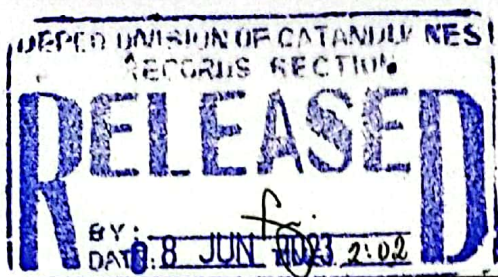 DEPED DIVISION OF CATANDUANES
RECORDS SECTION
RELEASED
BY:
DATE: 08 JUN 2023 2:02